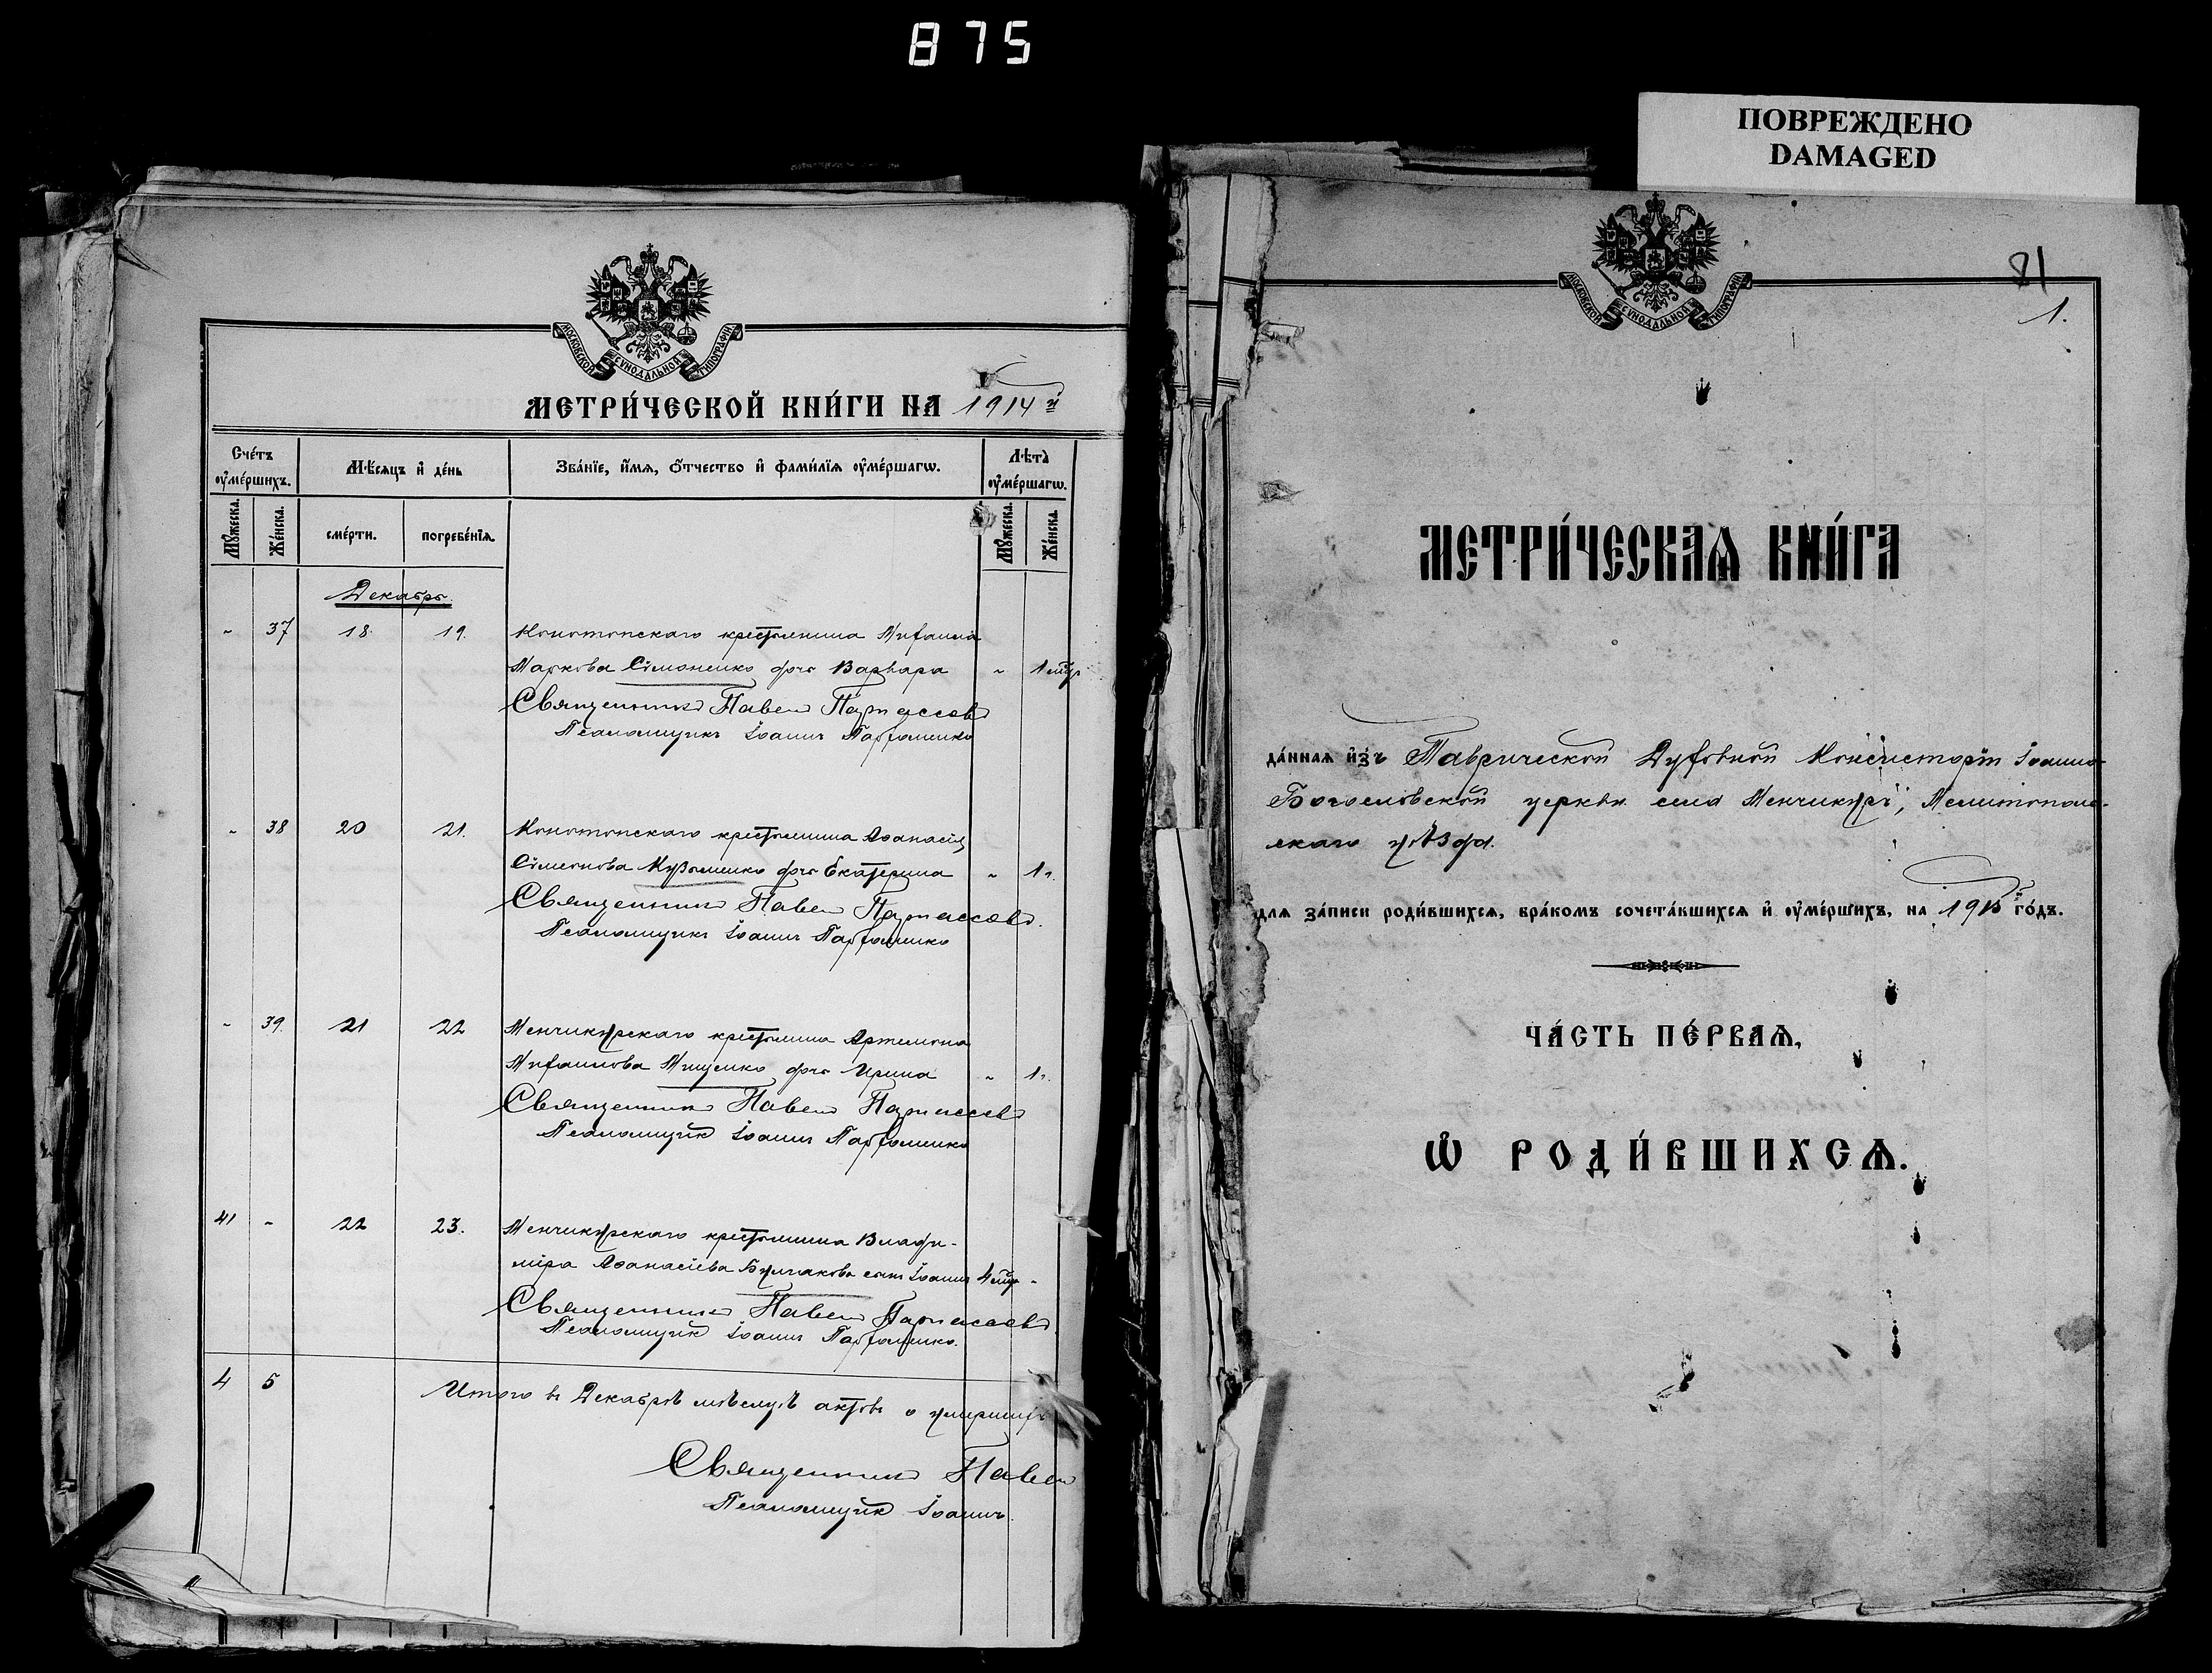 875
ПОВРЕЖДЕНО
DAMAGED
МОСКОВСКОЙ СѴНОДАЛЬНОЙ ТИПОГРАФІИ
МЕТРИ́ЧЕСКОЙ КНИ́ГИ НА 1914й
Сче́тъ ᲂу҆ме́ршихъ.
Мѣ́сяцъ и҆ де́нь
Зва́нїе, и҆́мѧ, ѻ҆́тчество и҆ фами́лїѧ ᲂу҆ме́ршагѡ.
Лѣ́та ᲂу҆ме́ршагѡ.
Мꙋ́жеска.
Же́нска.
сме́рти.
погребе́нїѧ.
Мꙋ́жеска.
Же́нска.
Декабрь.
" 37 18. 19. Конотопскаго крестьянина Михаила
Маркова Симоненко дочь Варвара " 1 мѣс
Священникъ Павелъ Парнассовъ
Псаломщикъ Іоаннъ Пархоменко
" 38 20 21. Конотопскаго крестьянина Аѳанасія
Симонова Кузьменко дочь Екатерина " 1 г.
Священникъ Павелъ Парнассовъ.
Псаломщикъ Іоаннъ Пархоменко
" 39. 21 22 Менчикурскаго крестьянина Артемона
Михаилова Мищенко дочь Ирина " 1 г.
Священникъ Павелъ Парнассовъ
Псаломщикъ Іоаннъ Пархоменко
41 " 22 23. Менчикурскаго крестьянина Влади-
міра Аѳанасіева Булчакова сынъ Іоаннъ 4 мѣс "
Священникъ Павелъ Парнассовъ
Псаломщикъ Іоаннъ Пархоменко.
4 5 Итого въ Декабрѣ мѣсяцѣ актовъ о умершихъ
Священникъ Павелъ
Псаломщикъ Іоаннъ
МОСКОВСКОЙ СѴНОДАЛЬНОЙ ТИПОГРАФІИ
81
1.
МЕТРИ́ЧЕСКАѦ КНИ́ГА
да́ннаѧ и҆зъ Таврической Духовной Консисторіи Іоанно-
Богословской церкви села Менчикуръ, Мелитополь-
скаго уѣзда.
для за́писи роди́вшихсѧ, бра́комъ сочета́вшихсѧ и҆ ᲂу҆ме́ршихъ, на 1915й го́дъ.
ЧА́СТЬ ПЕ́РВАѦ,
Ѽ РОДИ́ВШИХСѦ.